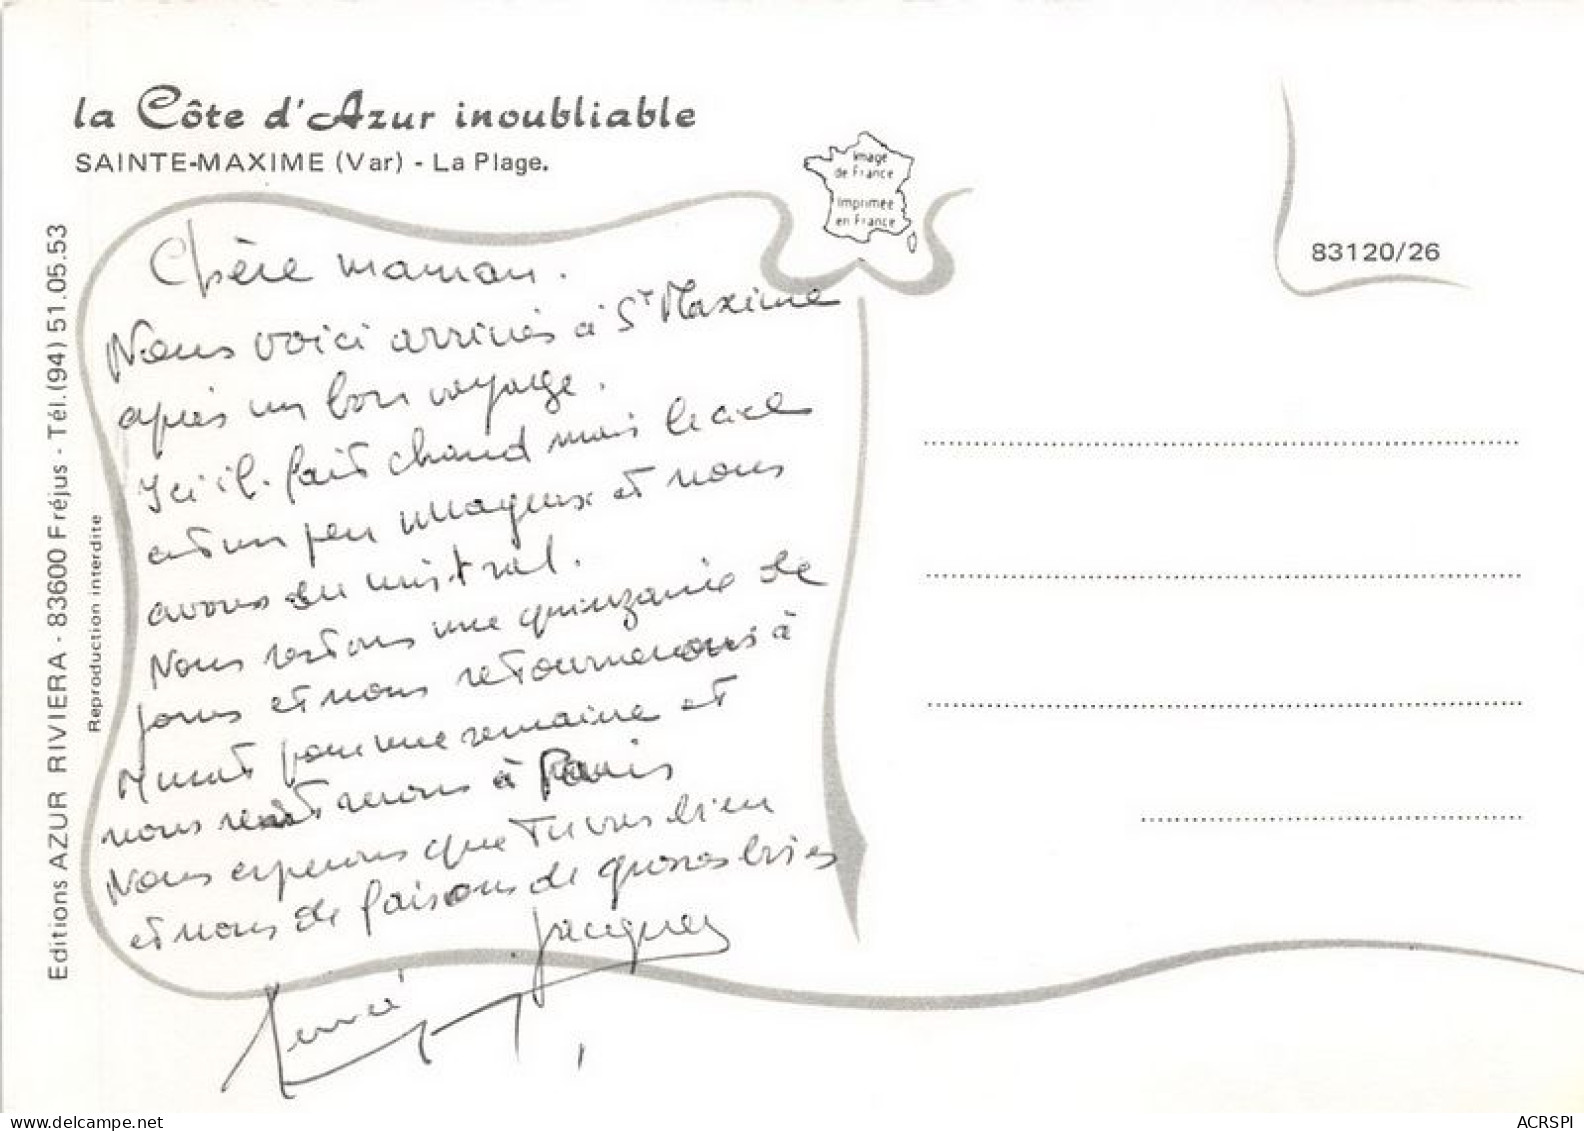 la Côte d'Azur inoubliable
SAINTE-MAXIME (Var) - La Plage.
Image
de France
Imprimée
en France
83120/26
Editions AZUR RIVIERA - 83600 Fréjus - Tél. (94) 51.05.53
Reproduction interdite
Chère maman.
Nous voici arrivés à St Maxime
après un bon voyage.
Ici il fait chaud mais le ciel
est un peu nuageux et nous
avons du mistral.
Nous restons une quinzaine de
jours et nous retournerons à
pour une semaine et
nous à Paris
Nous espérons que tu vas bien
et nous te faisons de grosses bises
Jacques
delcampe.net
ACRSPI